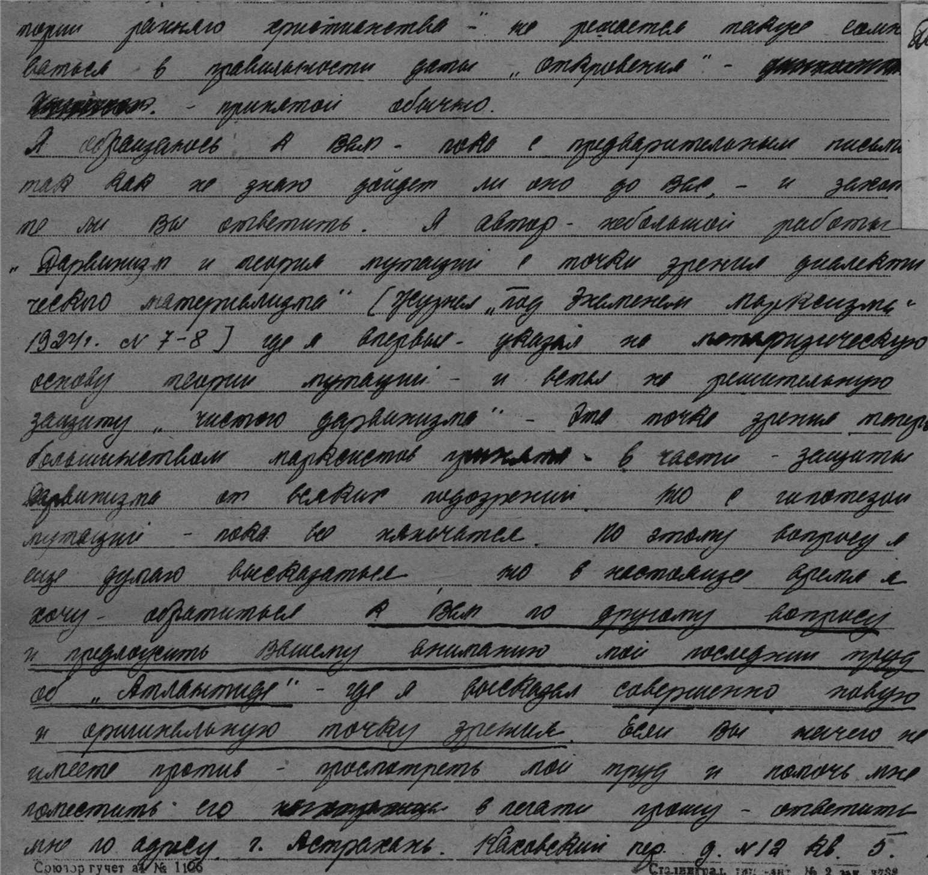 тории раннего христианства" - не решается также сомне
ваться в правильности даты „Откровения" -
- принятой обычно.
Я обращаюсь к Вам - пока с предварительным письмом
так как не знаю дойдет ли оно до Вас, - и захоти
те ли Вы ответить. Я автор - небольшой работы
„Дарвинизм и теория мутаций с точки зрения диалекти
ческого материализма" (Журнал „Под Знаменем Марксизма"
1924г. № 7-8) где я впервые - указал на метафизическую
основу теории мутаций - и встал на решительную
защиту „чистого дарвинизма" - Эта точка зрения теперь
большинством марксистов принята - в части - защиты
Дарвинизма от всяких подозрений. Но с гипотезой
мутаций - пока все нянчатся. По этому вопросу я
еще думаю высказаться, но в настоящее время я
хочу - обратиться к Вам по другому вопросу
и предложить Вашему вниманию мой последний труд
об „Атлантиде" - где я высказал совершенно новую
и оригинальную точку зрения. Если Вы ничего не
имеете против - просмотреть мой труд и помочь мне
поместить его в печати прошу - ответить
мне по адресу. г. Астрахань. Каховский пер. д. № 12 кв. 5.
№ 1106
Сталинград № 2